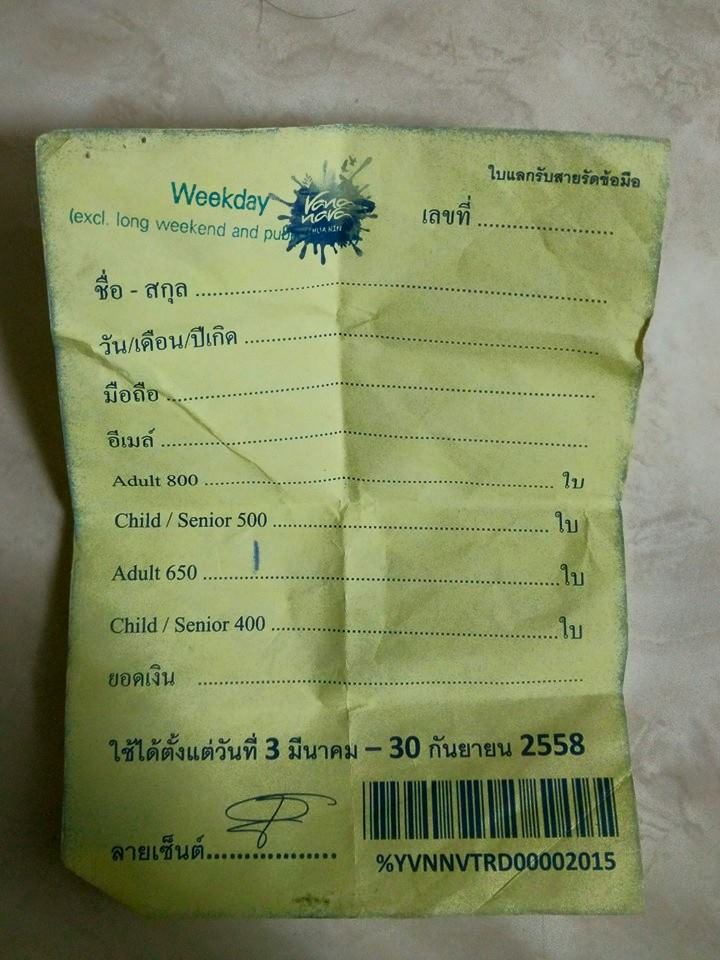 ใบแลกรับสายรัดข้อมือ
Weekday
(excl. long weekend and
Vana
nava
HUA HIN
เลขที่ ........................
ชื่อ - สกุล ........................
วัน/เดือน/ปีเกิด ........................
มือถือ ........................
อีเมล์ ........................
Adult 800 ........................ ใบ
Child / Senior 500 ........................ ใบ
Adult 650 ........ 1 ........................ ใบ
Child / Senior 400 ........................ ใบ
ยอดเงิน ........................
ใช้ได้ตั้งแต่วันที่ 3 มีนาคม – 30 กันยายน 2558
ลายเซ็นต์..................
%YVNNVTRD00002015